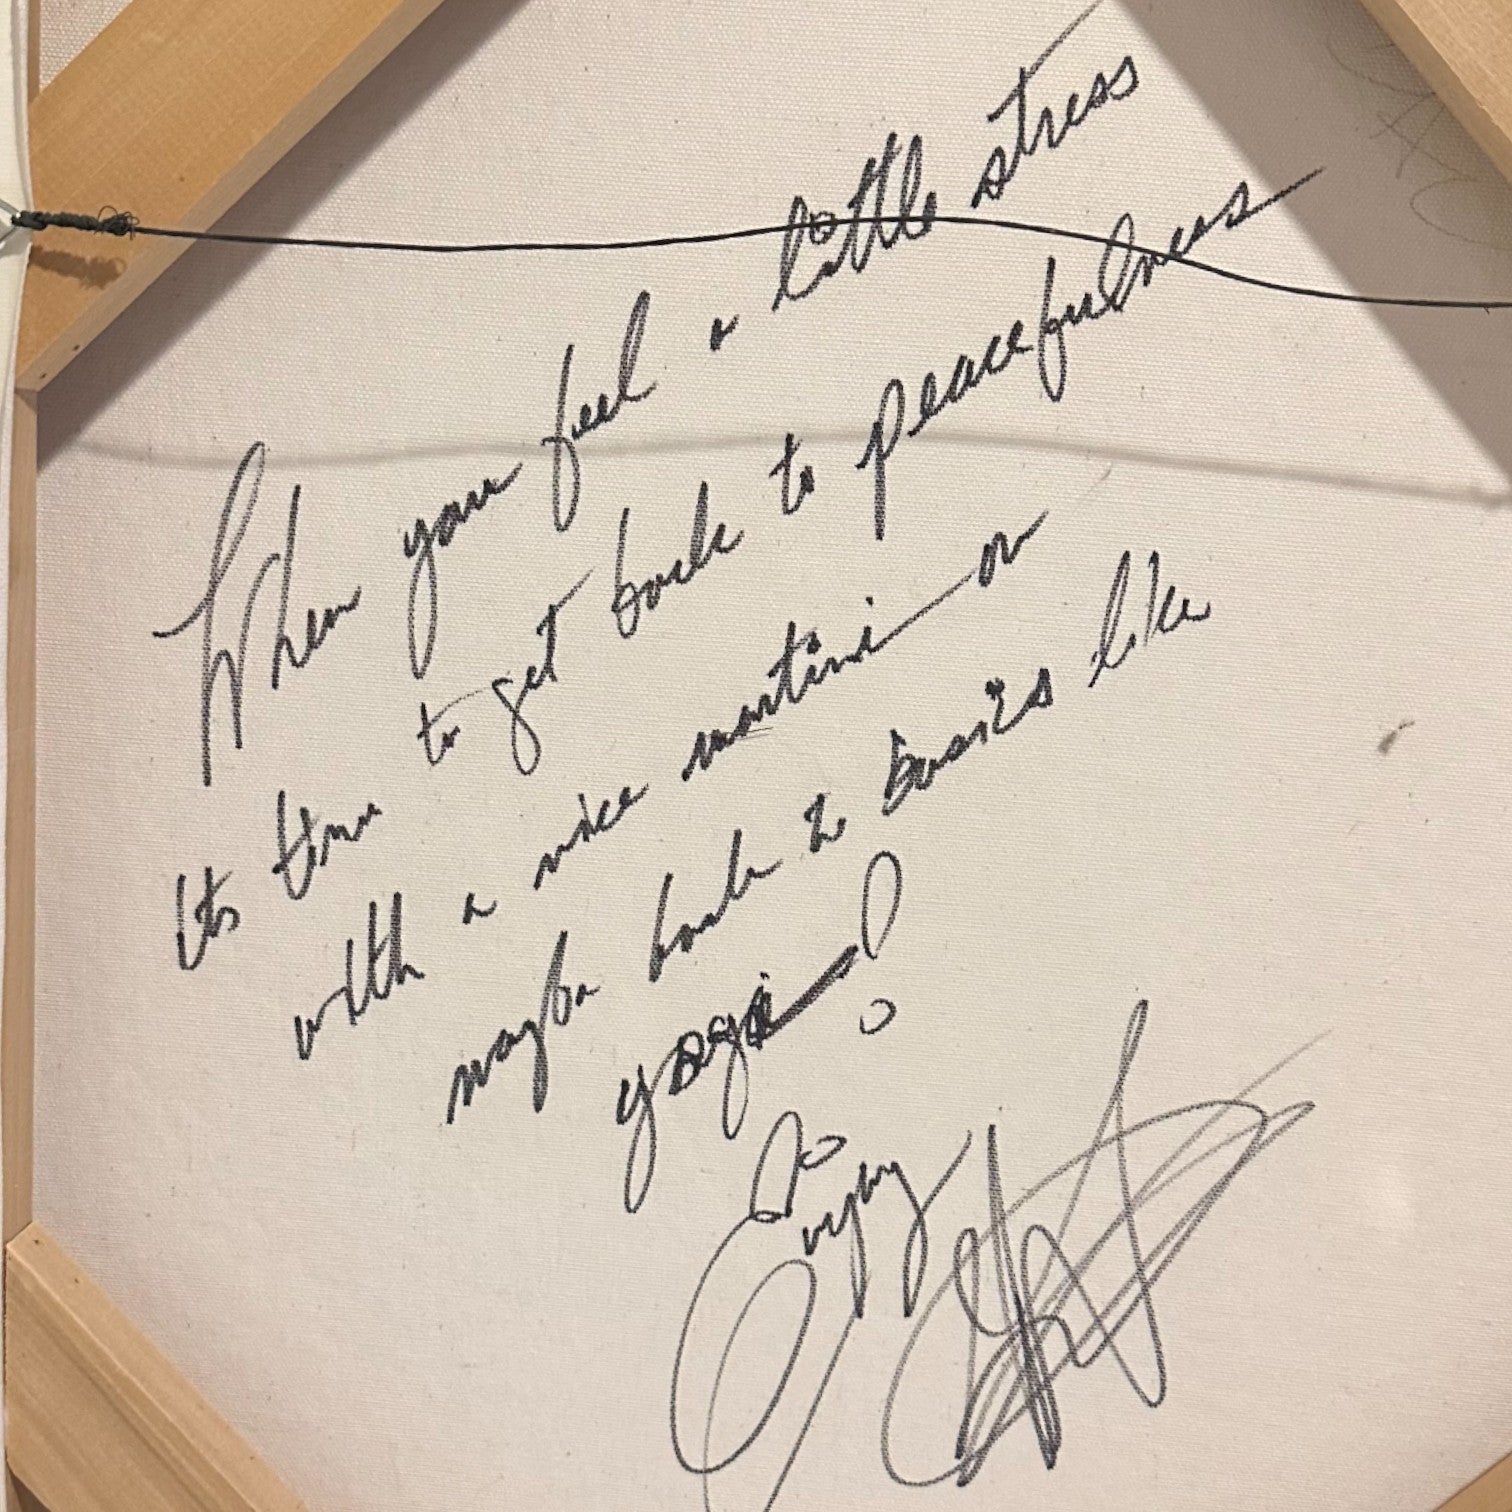 When you feel a little stress
Its time to get back to peacefulness
with a nice martini or
maybe back to basics like
yoga!
Enjoy